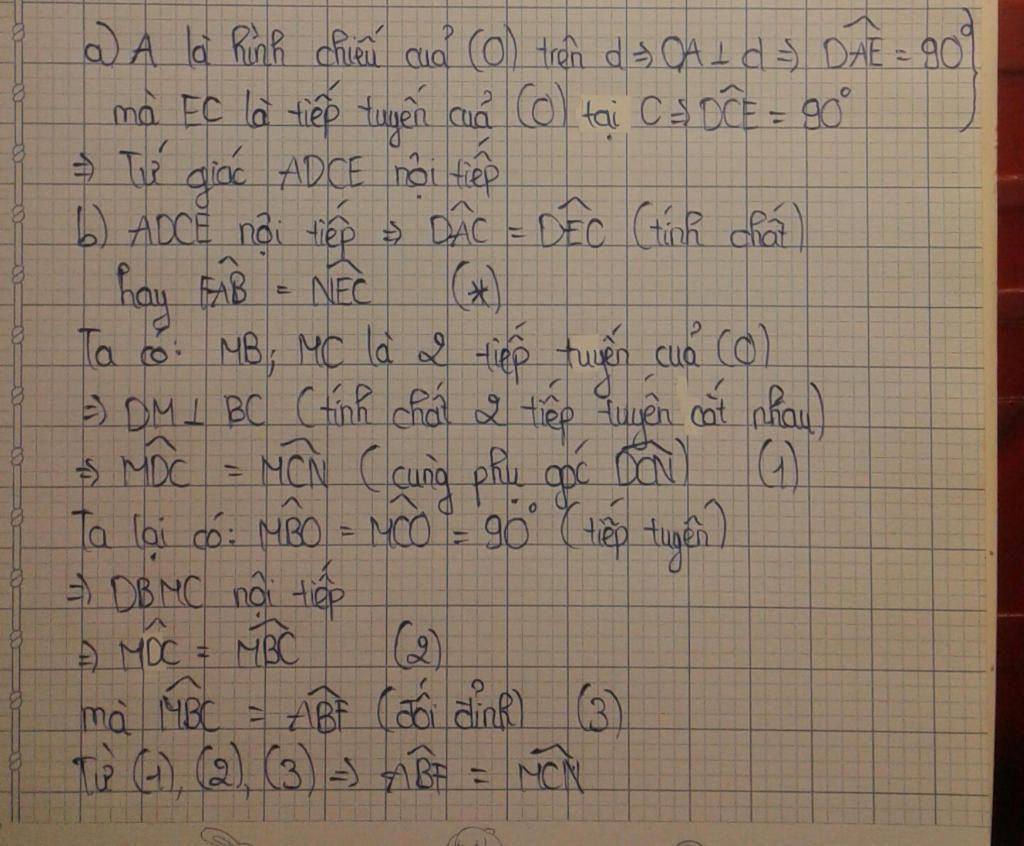 a) A là hình chiếu cuả (O) trên d ⇒ OA ⊥ d ⇒ \widehat{DAE} = 90° }
mà EC là tiếp tuyến cuả (O) tại C ⇒ \widehat{DCE} = 90°
⇒ Tứ giác ADCE nội tiếp
b) ADCE nội tiếp ⇒ \widehat{DAC} = \widehat{DEC} (tính chất)
hay \widehat{FAB} = \widehat{NEC} (*)
Ta có: MB, MC là 2 tiếp tuyến cuả (O)
⇒ DM ⊥ BC (tính chất 2 tiếp tuyến cắt nhau)
⇒ \widehat{MDC} = \widehat{MCN} (cùng phụ góc \widehat{DCN}) (1)
Ta lại có: \widehat{MBO} = \widehat{MCO} = 90° (tiếp tuyến)
⇒ DBMC nội tiếp
⇒ \widehat{MDC} = \widehat{MBC} (2)
mà \widehat{MBC} = \widehat{ABF} (đối đỉnh) (3)
Từ (1), (2), (3) ⇒ \widehat{ABF} = \widehat{MCN}